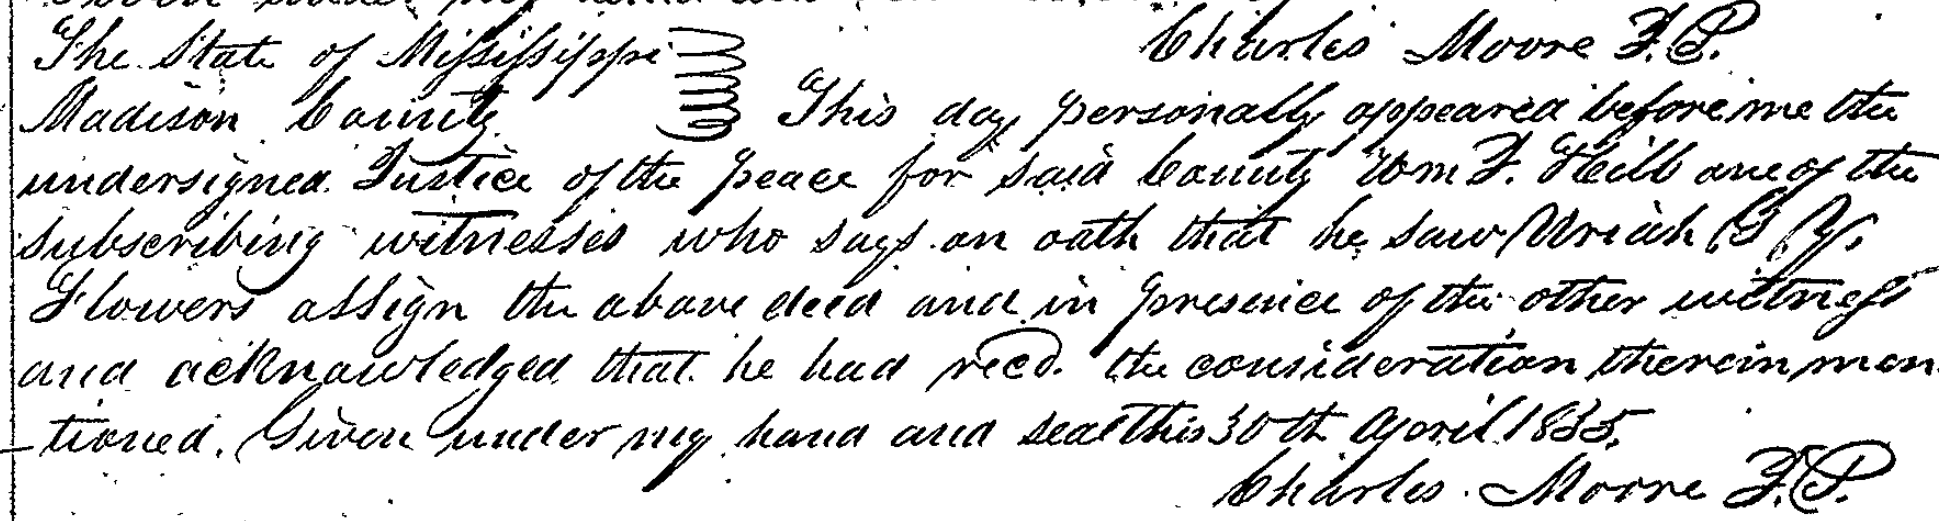 Charles Moore J.P.
The State of Mississippi
Madison County This day personally appeared before me the
undersigned Justice of the peace for said County Wm F. Hill one of the
subscribing witnesses who says on oath that he saw Uriah G Y.
Flowers assign the above deed and in presence of the other witness
and acknowledged that he had recd. the consideration therein men
-tioned. Given under my hand and seal this 30th April 1835.
Charles Moore J.P.